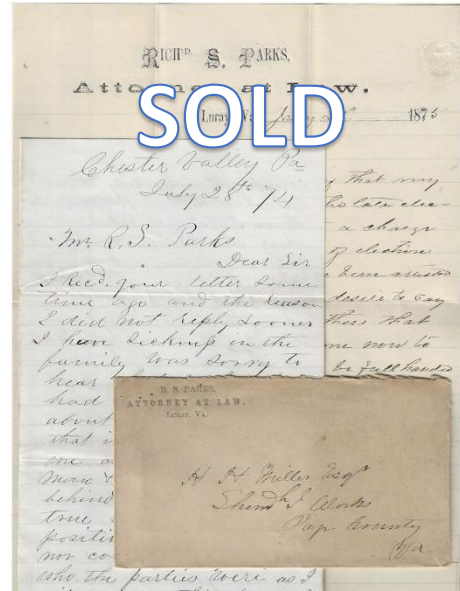 RICHD. S. PARKS,
Attorney at Law.
SOLD
Luray, Va. 1875
Chester Valley Pa
July 28th 74
Mr. R. S. Parks
Dear Sir
I Recd. your letter some
time ago and the reason
I did not reply sooner
I have sickness in the
family was sorry to
hear
had
about
that
me
behind
true
positi
nor co
who the parties were as I
that my
late elec-
a charge
of election
been arrested
desire to say
there that
me now to
be full handed
R. S. PARKS,
ATTORNEY AT LAW,
LURAY, VA.
H H Miller Esqr
Page County
Va